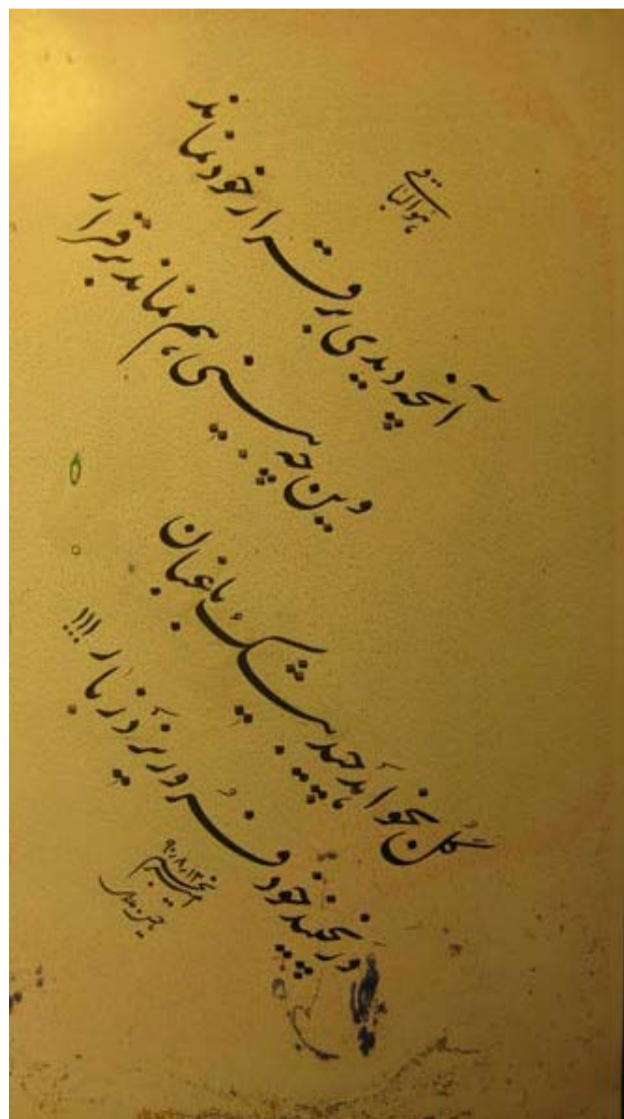 هوالباقی
آنچه دیدی برقرار خود نماند
وین چه بینی هم نماند برقرار
گل بخواهد چید بیشک باغبان
ور نچیند خود فرو ریزد ز بار!!!
۹۰/۸/۱۳